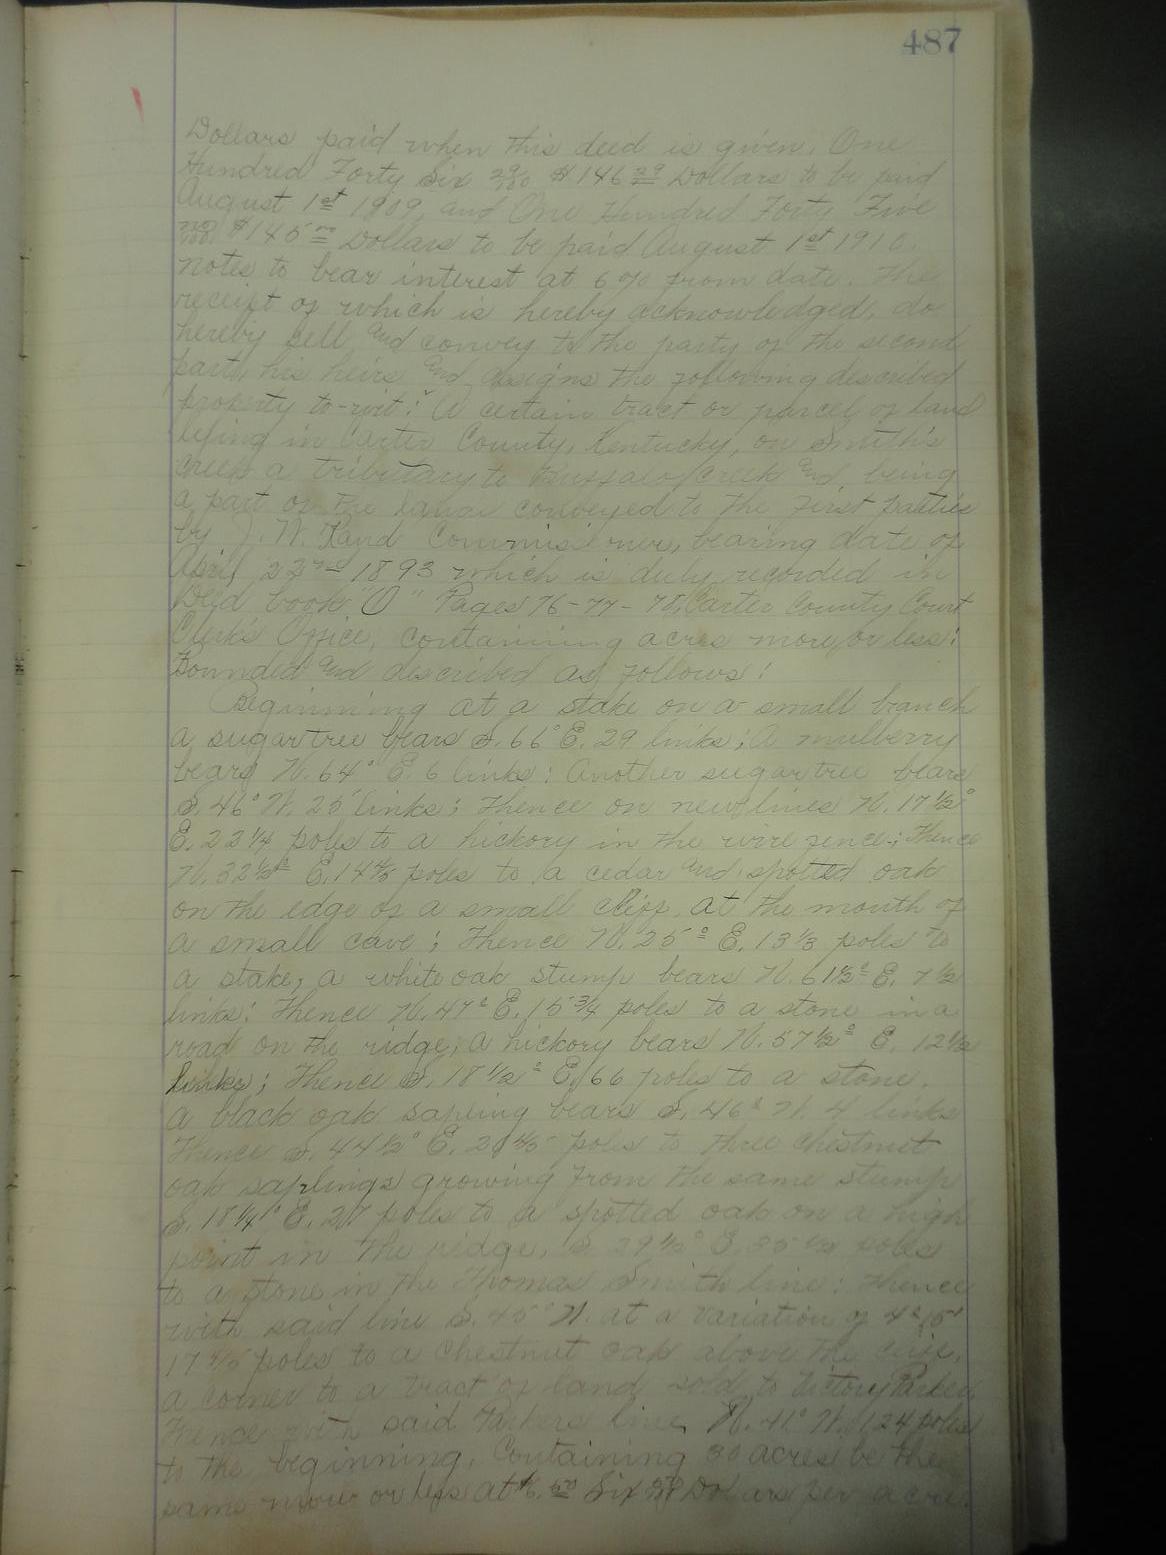 487
Dollars paid when this deed is given. One
Hundred Forty Six 29/100 $146 29 Dollars to be paid
August 1st 1909, and One Hundred Forty Five
no/100 $145 no Dollars to be paid August 1st 1910.
Notes to bear interest at 6% from date. The
receipt of which is hereby acknowledged, do
hereby sell and convey to the party of the second
part, his heirs and assigns the following described
property to-wit: A certain tract or parcel of land
lying in Carter County, Kentucky, on Smith's
Creek a tributary to Buffalo Creek and being
a part of the land conveyed to the first parties
by J. W. Rand Commissioner, bearing date of
April 23rd 1893 which is duly recorded in
Deed book "O" Pages 76-77-78, Carter County Court
Clerk's Office, containing acres more or less:
bounded and described as follows:
Beginning at a stake on a small branch
a sugartree bears S. 66° E. 29 links; A mulberry
bears N. 64° E. 6 links: Another sugartree bears
S. 46° W. 25 links; Thence on new lines N. 17 1/2°
E. 22 1/4 poles to a hickory in the wire fence; Thence
N. 32 1/2° E. 14 4/5 poles to a cedar and spotted oak
on the edge of a small cliff, at the mouth of
a small cave; Thence N. 25° E. 13 1/3 poles to
a stake, a white oak stump bears N. 61 1/2° E. 7 1/2
links: Thence N. 47° E. 15 3/4 poles to a stone in a
road on the ridge, a hickory bears N. 57 1/2° E. 12 1/2
links; Thence S. 18 1/2° E. 66 poles to a stone.
A black oak sapling bears S. 46° W. 4 links
Thence S. 44 1/2° E. poles to three chestnut
oak saplings growing from the same stump
S. 18 1/4° E. 27 poles to a spotted oak on a high
point in the ridge, S. 29 1/2° E. 35 poles
to a stone in the Thomas Smith line: Thence
with said line S. 45° W. at a variation of 4° 15'
17 poles to a Chestnut oak above the cliff,
a corner to a tract of land sold to Victory Parker
Thence with said Parkers line N. 41° W. 124 poles
to the beginning, Containing 30 acres be the
same more or less at $6.50 Six Dollars per acre.